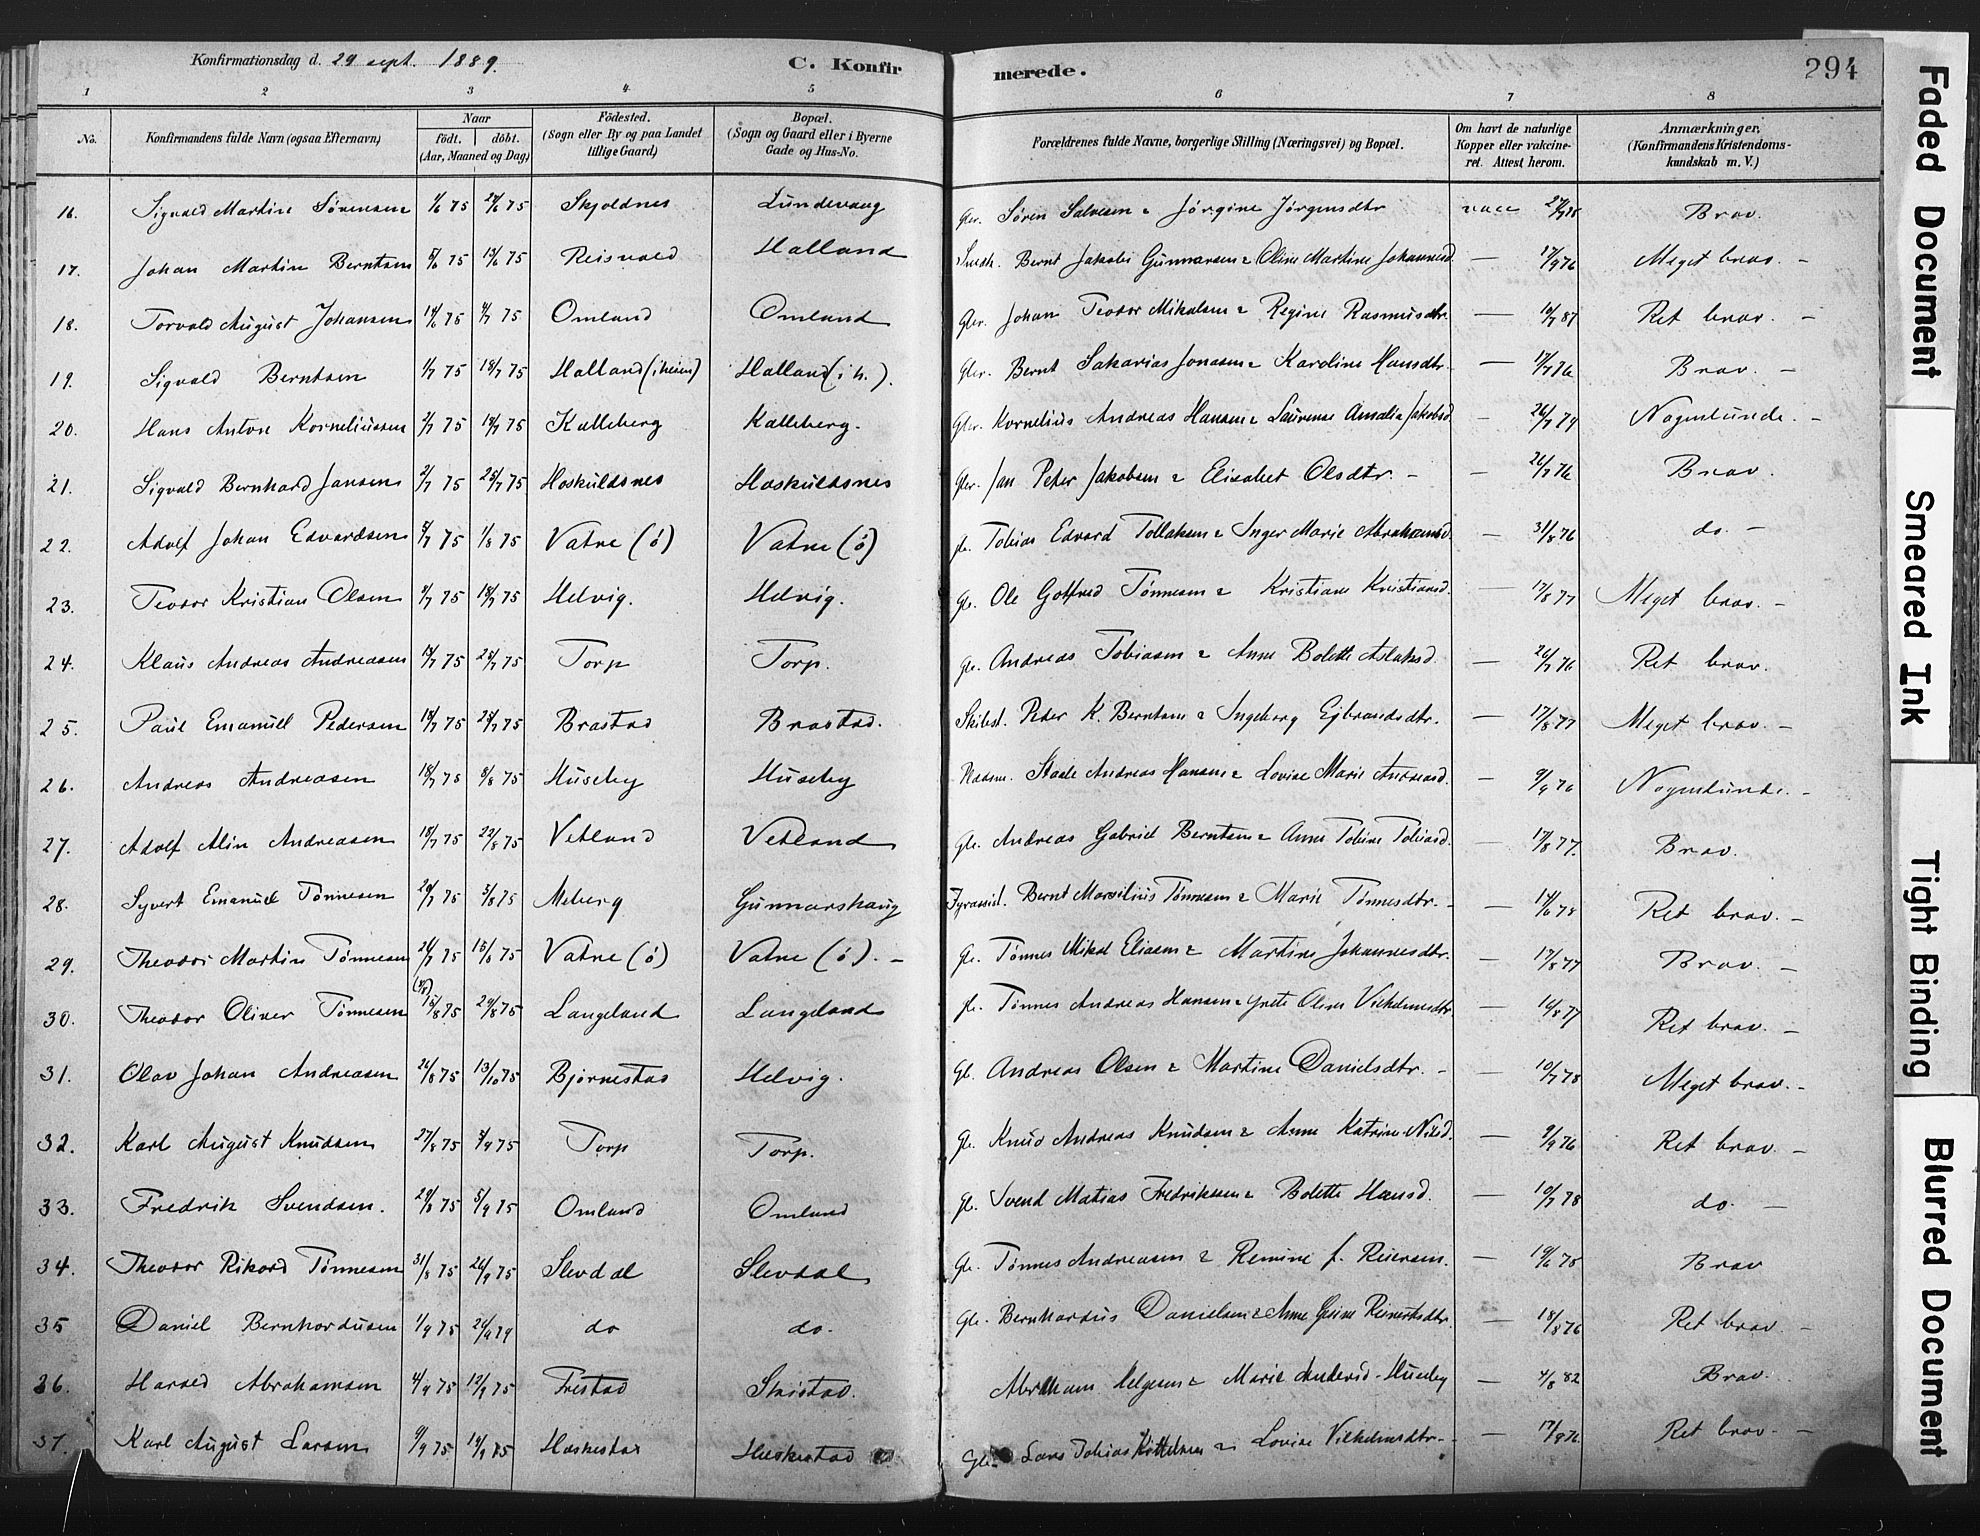 Konfirmationsdag d. 29 sept. 1889.
C. Konfirmerede.
294
1 2 3 4 5 6 7 8
No.
Konfirmandens fulde Navn (ogsaa Efternavn)
Naar
født. døbt.
(Aar, Maaned og Dag)
Fødested.
(Sogn eller By og paa Landet
tillige Gaard)
Bopæl.
(Sogn og Gaard eller i Byerne
Gade og Hus-No.
Forældrenes fulde Navne, borgerlige Stilling (Næringsvei) og Bopæl.
Om havt de naturlige
Kopper eller vaccine-
ret. Attest herom.
Anmærkninger,
(Konfirmandens Kristendoms-
kundskab m. V.)
16. Sigvald Martin Sørensen 1/6 75 27/6 75 Skjoldnes Lundevaag Gbr. Søren Salvesen & Jørgine Jørgensdtr vacc Brav.
17. Johan Martin Berntsen 5/6 75 13/6 75 Reisvold Halland Smedm. Bernt Jakobi Gunnarsen & Oline Martine Johannesd. — 17/9 76 Meget brav. —
18. Torvald August Johansen 14/6 75 4/7 75 Omland Omland Gbr. Johan Teodor Mikalsen & Regine Rasmusdtr. — 14/7 87 Ret brav. —
19. Sigvald Berntsen 1/7 75 18/7 75 Halland (i heien) Halland (i h.). Gbr. Bernt Sakarias Jonasen & Karoline Hansdtr. — 17/7 76 Brav. —
20. Hans Anton Korneliussen 2/7 75 18/7 75 Kalleberg Kalleberg. Gbr. Kornelius Andreas Hansen & Laurense Amalia Jakobsd. — 26/7 79 Nogenlunde. —
21. Sigvald Bernhard Jansen 2/7 75 25/7 75 Hoskuldsnes Hoskuldsnes Gbr. Jan Peter Jakobsen & Elisabet Olsdtr. — — 26/7 76 Brav.
22. Adolf Johan Edvardsen 8/7 75 1/8 75 Vatne (ö) Vatne (ö) gb. Tobias Edvard Tollaksen & Inger Marie Abrahamsd. — 31/8 76 do. —
23. Teodor Kristian Olsen 9/7 75 18/7 75 Helvig. Helvig. Gb. Ole Gotfred Tønnesen & Kristiane Kristiansd. — 17/8 77 Meget brav. —
24. Klaus Andreas Andreasen 13/7 75 25/7 75 Torp Torp. Gb. Andreas Tobiasen & Anne Bolette Aslaksd. — 26/7 76 Ret brav.
25. Paul Emanuel Pedersen 18/7 75 25/7 75 Brastad Brastad. Skibst. Peter K. Berntsen & Ingeborg Ejbrandsdtr. — 17/8 77 Meget brav. —
26. Andreas Andreasen 18/7 75 8/8 75 Huseby Huseby Staale Andreas Hansen & Lovise Marie — 9/9 76 Nogenlunde. —
27. Adolf Alin Andreasen 18/7 75 22/8 75 Vetland Vetland Gb. Andreas Gabriel Berntsen & Anne Tobine Tobiasd. — 17/8 77. Brav.
28. Syvert Emanuel Tønnesen 20/7 75 5/8 75 Meberg Gunnarshaug Bernt Marsilius Tønnesen & Marie Tønnesdtr. — — 14/6 78 Ret brav. —
29. Theodor Martin Tønnesen 26/7 75 15/8 75 Vatne (ö) Vatne (ö). — Gb. Tønnes Mikal Eliasen & Martine Johannesdtr. — 17/8 77 Brav. —
30. Theodor Oliver Tønnesen 15/8 75 29/8 75 Langeland Langeland gb. Tønnes Andreas Hansen & Grete Oline Vilhelmsdtr. — 16/8 77 Ret brav. —
31. Olav Johan Andreasen 26/8 75 13/10 75 Bjørnestad Helvig. Gb. Andreas Olsen & Martine Danielsdtr. — — 10/7 78 Meget brav. —
32. Karl August Knudsen 27/8 75 5/9 75 Torp Torp. Gb. Knud Andreas Knudsen & Anne Katrine Nilsd. — 9/9 76 Ret brav. —
33. Fredrik Svendsen. 29/8 75 5/9 75 Omland Omland gb. Svend Matias Fredriksen & Bolette Hansd. — 10/7 78 do. —
34. Theodor Rikard Tønnesen 31/8 75 26/9 75 Slevdal Slevdal Gb. Tønnes Andreasen & Remine f. Reiersen. — 19/6 78 Brav
35 Daniel Bernhardusen 1/9 75 26/9 79 do do. Gb. Bernhardus Danielsen & Anne Gesine Reinertsdtr. — 18/8 76 Ret brav. —
36. Harald Abrahamsen 4/9 75 12/9 75 Frestad Skistad. Abraham Helgesen & Marie Andersd. Huseby — 4/8 82 Brav.
37. Karl August Larsen 9/9 75 19/9 75 Haskestad Heskestad Gb. Lars Tobias Kittelsen & Lovise Vilhelmsdtr. — — Ret brav. —
Faded Document
Smeared Ink
Tight Binding
Blurred Document